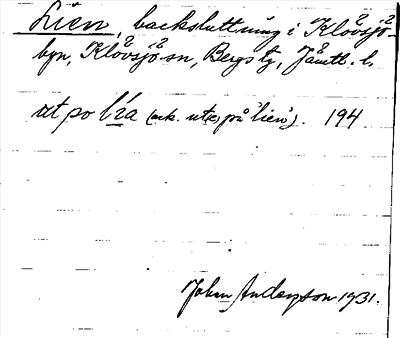 Lien, backsluttning i Klövsjö-
byn, Klövsjö sn, Bergs tg, Jämtl. l.
ut po lìa (ack. utt. på 'lien'). 194
Johan Anderson 1931.